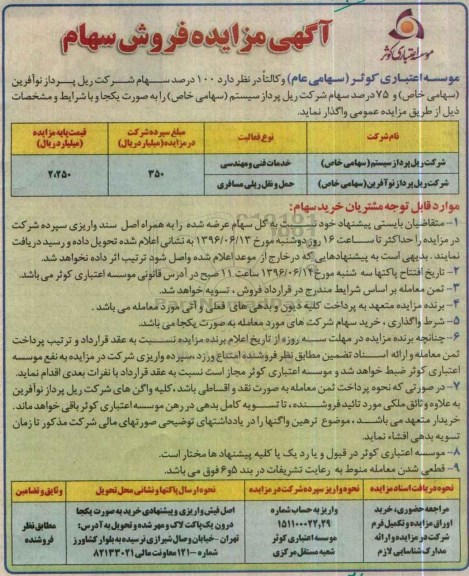 موسسه اعتباری کوثر
آگهی مزایده فروش سهام
موسسه اعتباری کوثر (سهامی عام) وکالتاً در نظر دارد ۱۰۰ درصد سهام شرکت ریل پرداز نوآفرین
(سهامی خاص) و ۷۵ درصد سهام شرکت ریل پرداز سیستم (سهامی خاص) را به صورت یکجا و با شرایط و مشخصات
ذیل از طریق مزایده عمومی واگذار نماید.
نام شرکت
نوع فعالیت
مبلغ سپرده شرکت در مزایده (میلیارد ریال)
قیمت پایه مزایده (میلیارد ریال)
شرکت ریل پرداز سیستم (سهامی خاص)
خدمات فنی و مهندسی
شرکت ریل پرداز نوآفرین (سهامی خاص)
حمل و نقل ریلی مسافری
۳۵۰
۲،۲۵۰
موارد قابل توجه مشتریان خرید سهام:
۱- متقاضیان بایستی پیشنهاد خود نسبت به کل سهام عرضه شده را به همراه اصل سند واریزی سپرده شرکت
در مزایده را حداکثر تا ساعت ۱۶ روز دوشنبه مورخ ۱۳۹۶/۰۶/۱۳ به نشانی اعلام شده تحویل داده و رسید دریافت
نمایند. بدیهی است به پیشنهادهایی که در خارج از موعد اعلام شده واصل شود ترتیب اثر داده نخواهد شد.
۲- تاریخ افتتاح پاکتها سه شنبه مورخ ۱۳۹۶/۰۶/۱۴ ساعت ۱۱ صبح در آدرس قانونی موسسه اعتباری کوثر می باشد.
۳- ثمن معامله بر اساس شرایط مندرج در قرارداد فروش، تسویه خواهد شد.
۴- برنده مزایده متعهد به پرداخت کلیه دیون و بدهی های قطعی و آتی مورد معامله می باشد.
۵- شرط واگذاری، خرید سهام شرکت های مورد معامله به صورت یکجا می باشد.
۶- چنانچه برنده مزایده در مهلت سه روزه از تاریخ اعلام برنده مزایده نسبت به عقد قرارداد و ترتیب پرداخت
ثمن معامله و ارائه اسناد تضمین مطابق نظر فروشنده امتناع ورزد، سپرده واریزی شرکت در مزایده به نفع موسسه
اعتباری کوثر ضبط خواهد شد و موسسه اعتباری کوثر مجاز است نسبت به عقد قرارداد با نفرات بعدی اقدام نماید.
۷- در صورتی که نحوه پرداخت ثمن معامله به صورت نقد و اقساطی باشد، کلیه واگن های شرکت ریل پرداز نوآفرین
به علاوه وثائق ملکی مورد تائید فروشنده، تا تسویه کامل بدهی در رهن موسسه اعتباری کوثر باقی خواهد ماند.
خریدار متعهد می باشد، موضوع ترهین واگنها را در یادداشتهای توضیحی صورتهای مالی شرکت مذکور تا زمان
تسویه بدهی افشاء نماید.
۸- موسسه اعتباری کوثر در قبول و یا رد یک یا کلیه پیشنهاد ها مختار است.
۹- قطعی شدن معامله منوط به رعایت تشریفات در بند ۵ و ۶ فوق می باشد.
نحوه دریافت اسناد مزایده
نحوه واریز سپرده شرکت در مزایده
نحوه ارسال پاکتها و نشانی محل تحویل
وثایق و تضامین
مراجعه حضوری، خرید
اوراق مزایده و تکمیل فرم
شرکت در مزایده و ارائه
مدارک شناسایی لازم
واریز به حساب شماره
۱۵۱۱۰۰۰۲۲،۲۹
موسسه اعتباری کوثر
شعبه مستقل مرکزی
اصل فیش واریزی و پیشنهادی خرید به صورت یکجا
درون یک پاکت لاک و مهر شده و تحویل به آدرس:
تهران - خیابان وصال شیرازی نرسیده به بلوار کشاورز
شماره ۱۲۱- معاونت مالی ۸۲۱۳۳۰۲۱
مطابق نظر
فروشنده